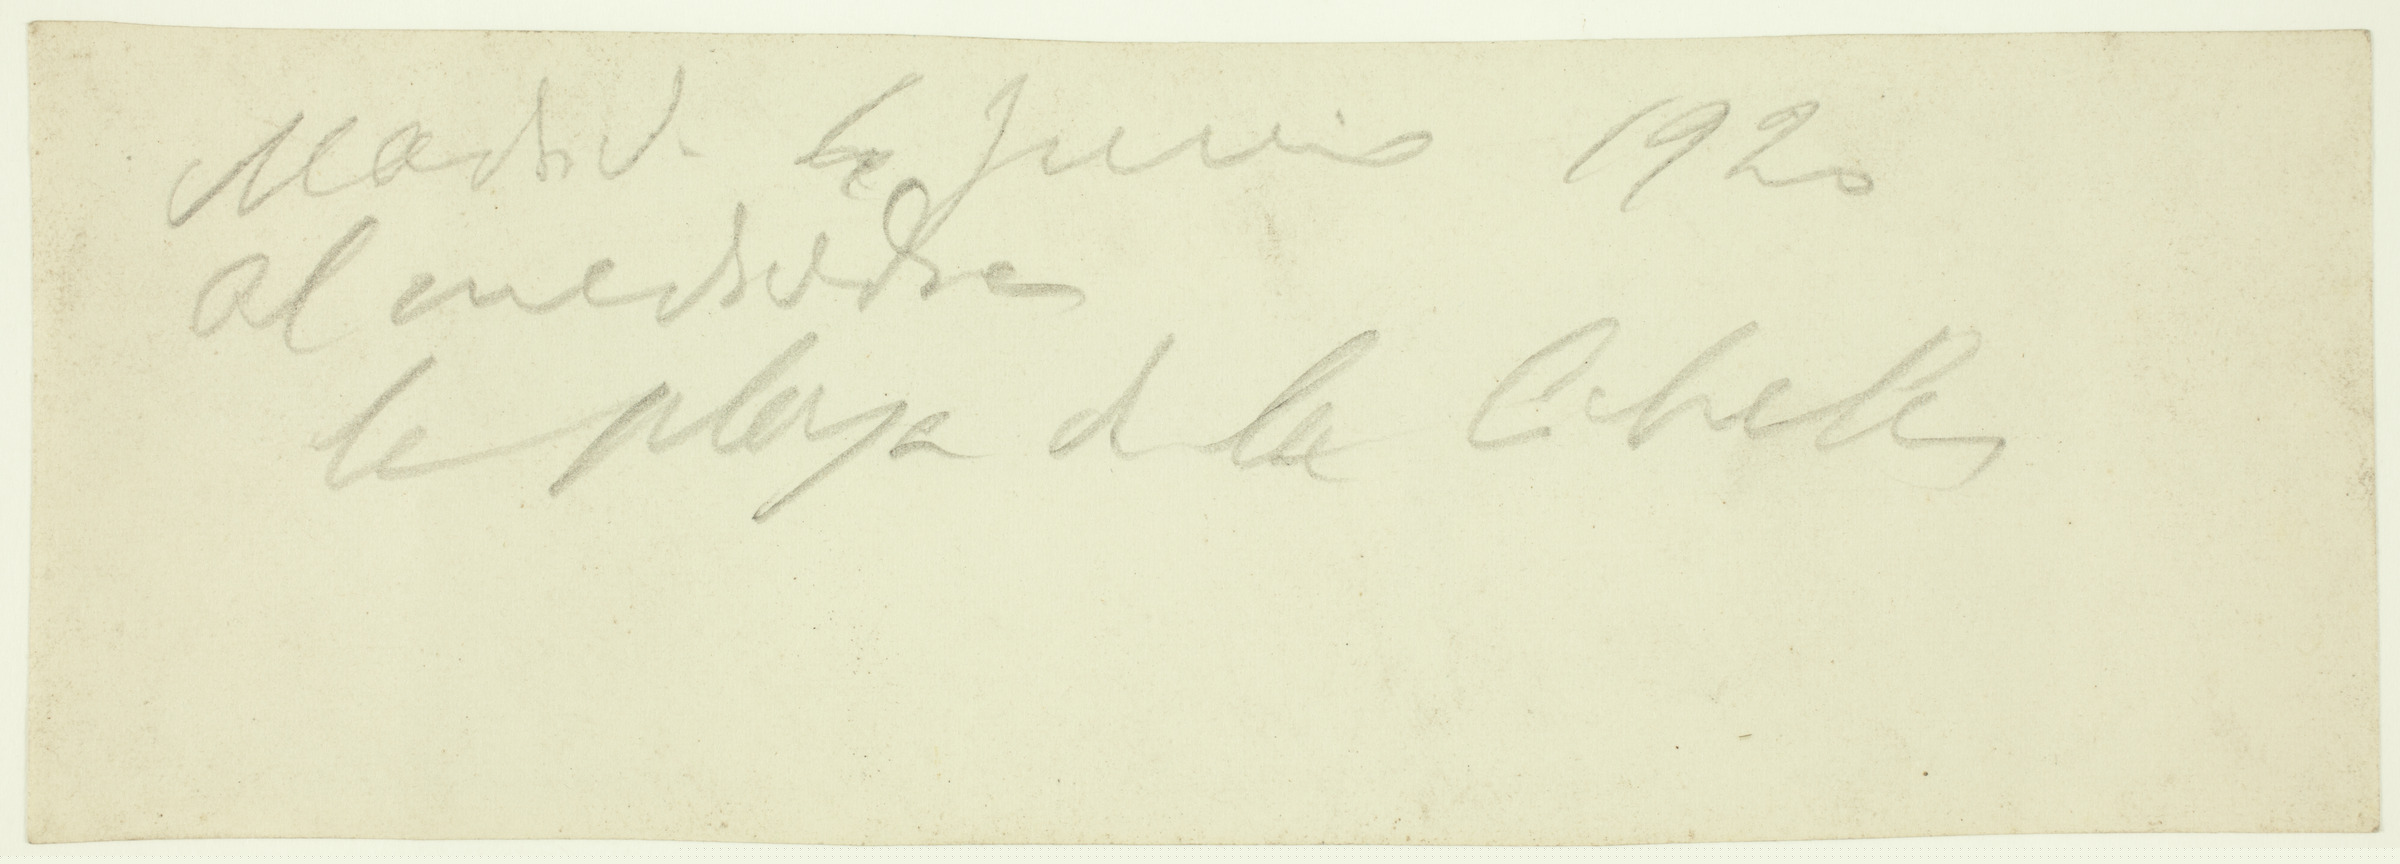 Madrid. 6 Junio 1920
al mediodia
la plaza de la Cibeles